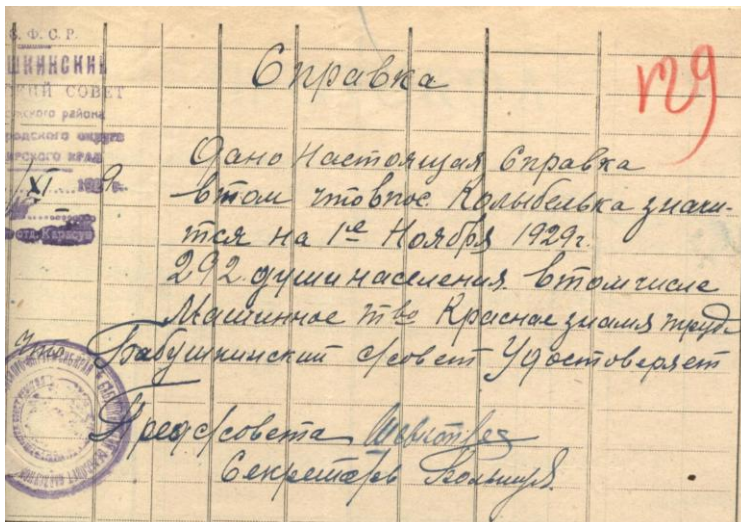 С. Ф. С. Р.
СОВЕТ
района
округа
КРАЯ
XI
Карасук
Справка
129
Дано настоящая Справка
втом чтовпос. Колыбелька значи-
тся на 1е Ноября 1929г.
292 души населения. втомчисле
Машинное тво Красное знамя труда
Что Бабушкинский с/совет Удостоверяет
Пред с/совета
Секретарь